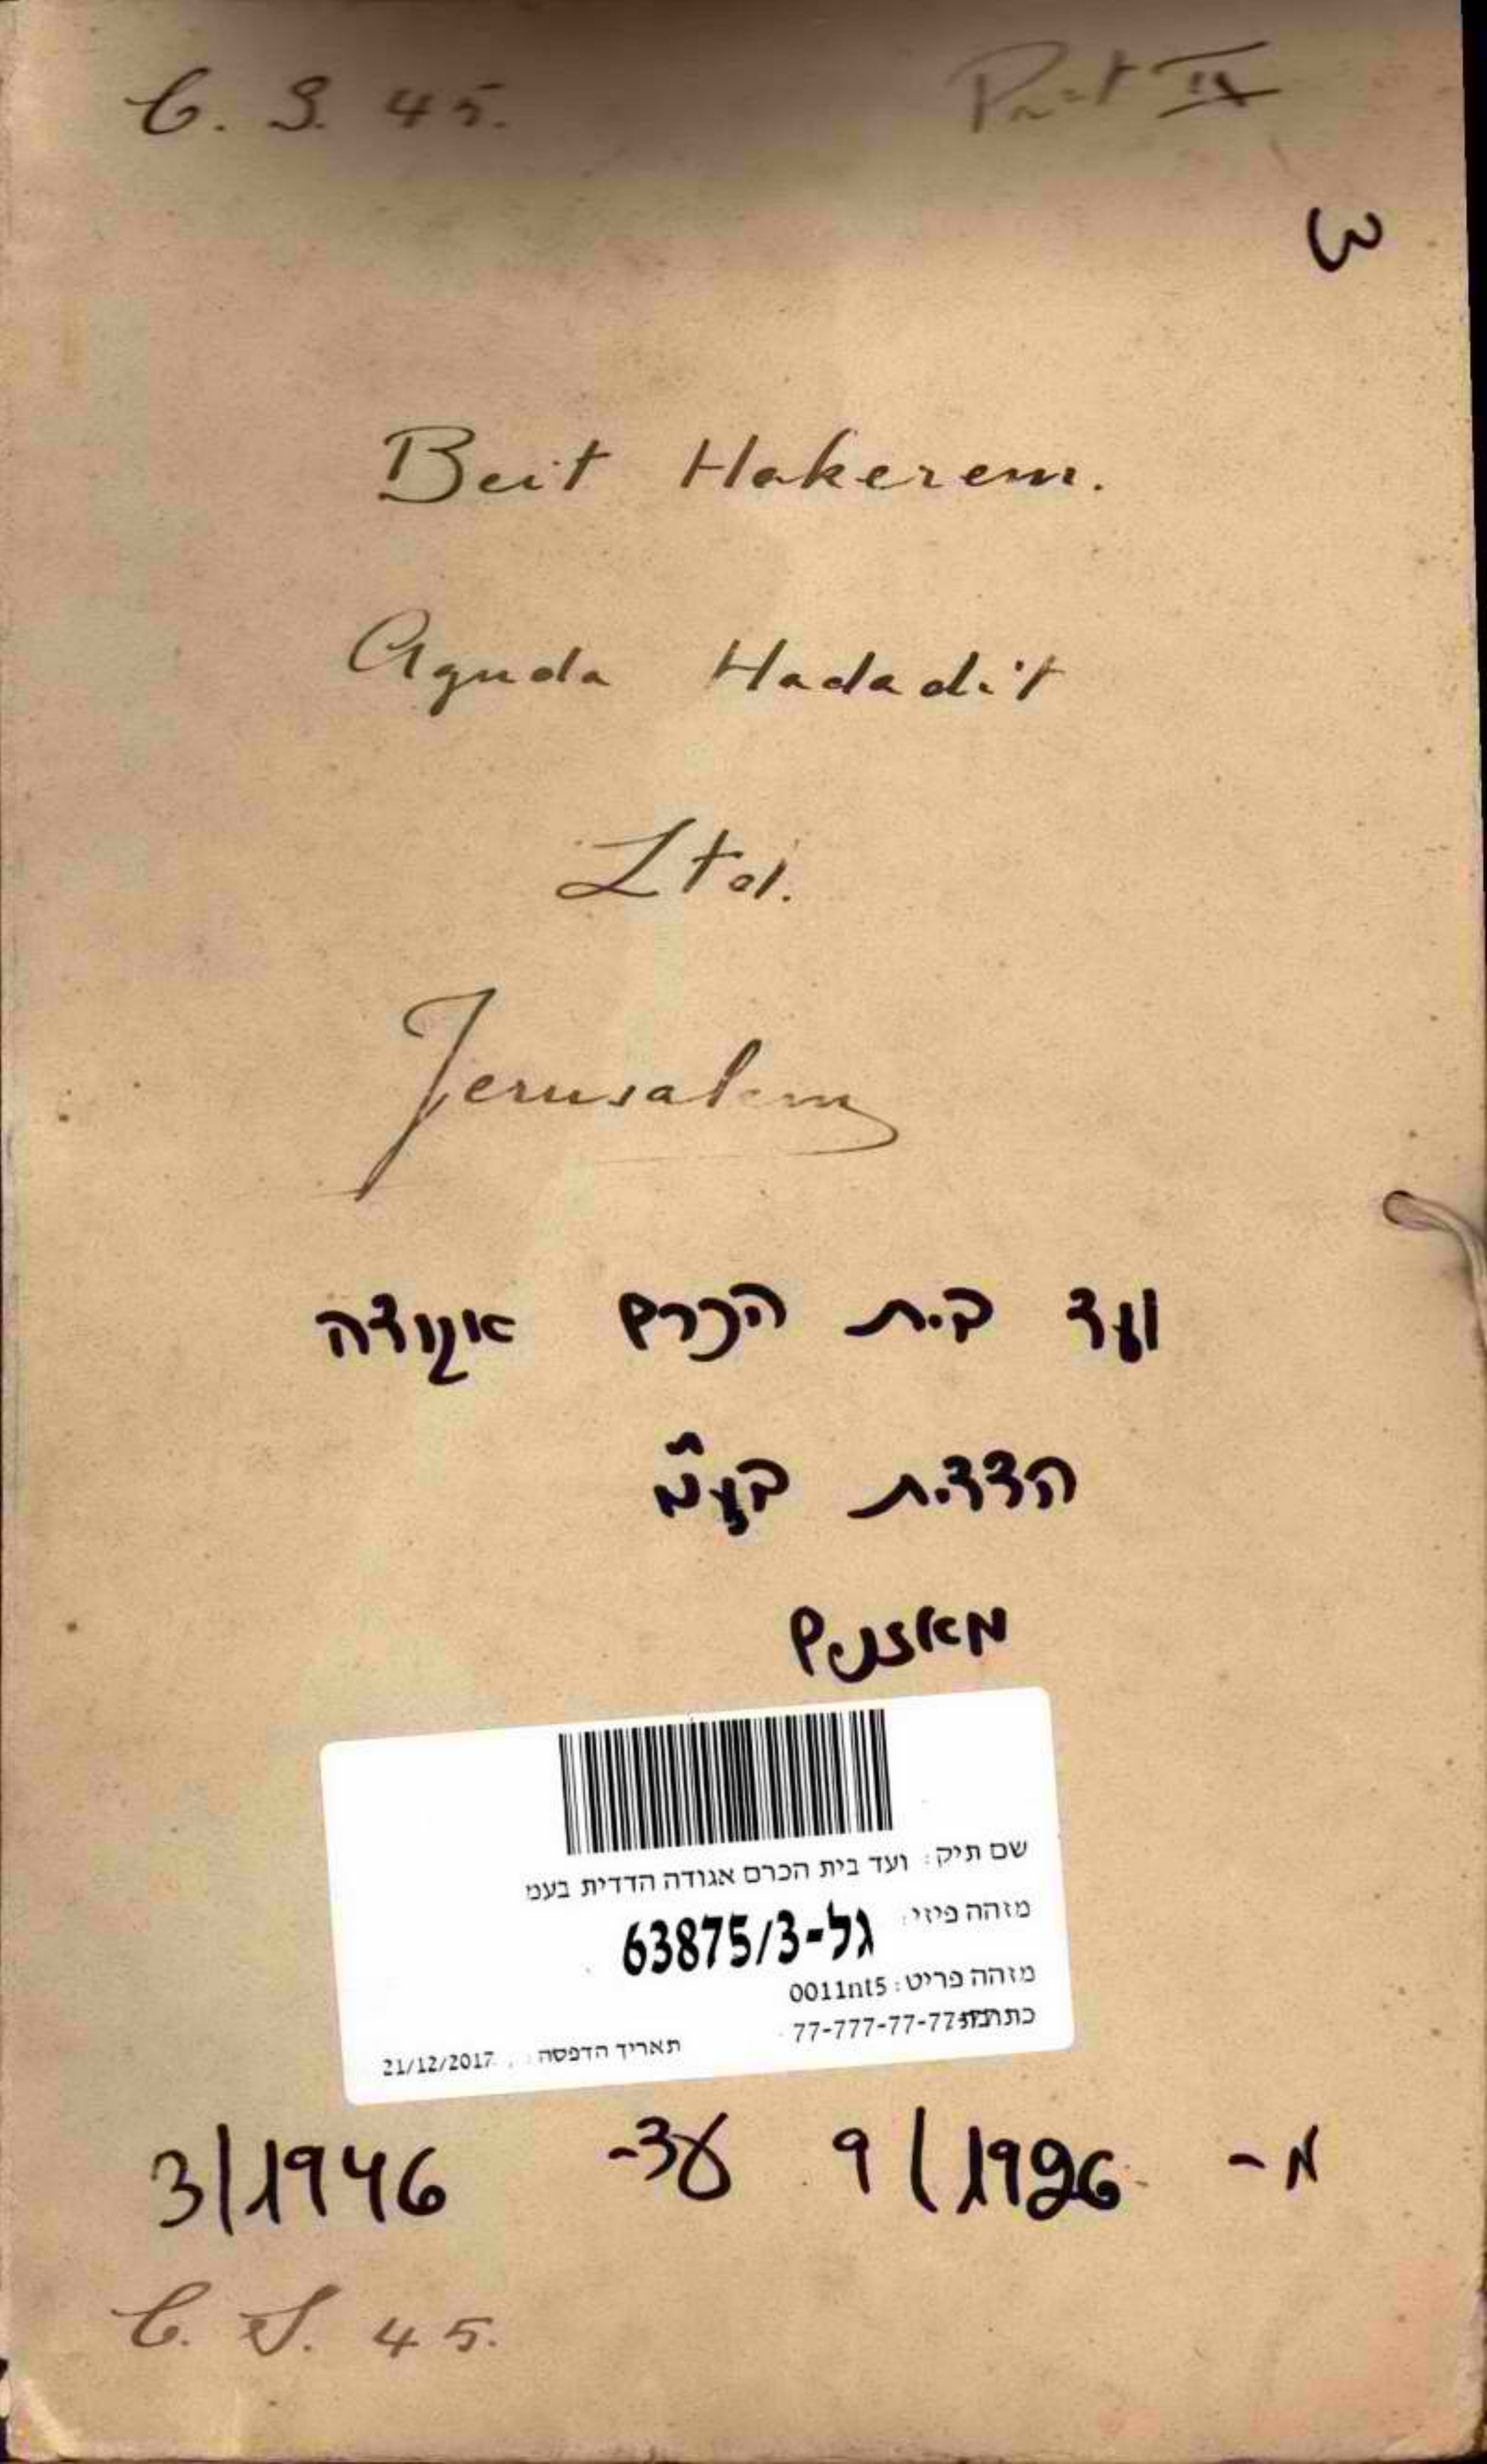 C. S. 45. Part II
3
Beit Hakerem.
Aguda Hadadit
Ltd.
Jerusalem
ועד בית הכרם אגודה
הדדית בע"מ
מאזנים
שם תיק: ועד בית הכרם אגודה הדדית בעמ
מזהה פיזי: גל-63875/3
מזהה פריט: 0011nt5
77-777-77-77
תאריך הדפסה: 21/12/2017
מ- 9/1926 עד- 3/1946
C. S. 45.